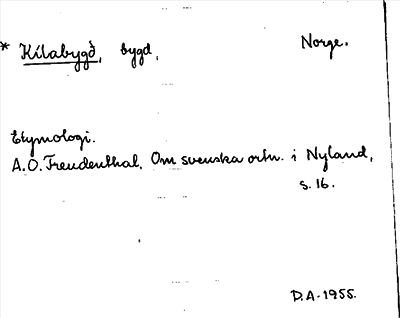 * Kílabygð, bygd, Norge.
Etymologi.
A.O. Freudenthal, Om svenska ortn. i Nyland,
s. 16.
D.A. 1955.